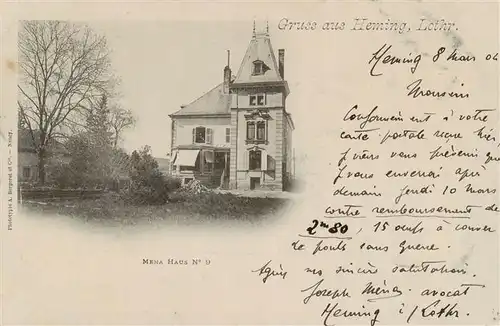 Gruss aus Heming, Lothr.
Heming 8 Mars 04
Monsieur
Conformément à votre
carte postale reçue hier,
je viens vous prévenir que
vous enverrai
demain jeudi 10 mars
contre remboursement de
2m80, 15 œufs à couver
de poules sans guerre.
Agréez mes sincères salutations.
Joseph avocat
Heming i/Lothr.
MENA HAUS Nº 9
Phototypie A. Bergeret et Cie. — Nancy.